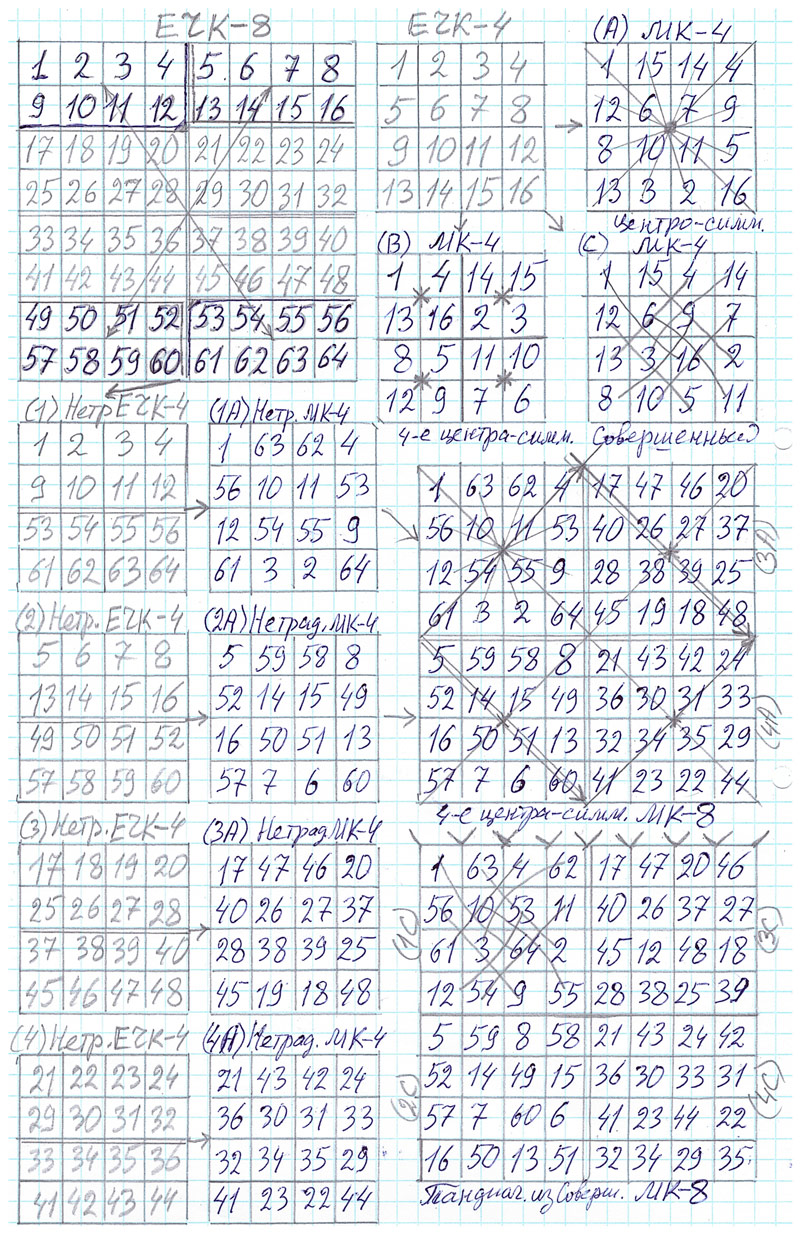 ЕЧК-8
1 2 3 4 5 6 7 8
9 10 11 12 13 14 15 16
17 18 19 20 21 22 23 24
25 26 27 28 29 30 31 32
33 34 35 36 37 38 39 40
41 42 43 44 45 46 47 48
49 50 51 52 53 54 55 56
57 58 59 60 61 62 63 64
ЕЧК-4
1 2 3 4
5 6 7 8
9 10 11 12
13 14 15 16
(А) МК-4
1 15 14 4
12 6 7 9
8 10 11 5
13 3 2 16
центро-симм.
(В) МК-4
1 4 14 15
13 16 2 3
8 5 11 10
12 9 7 6
4-е центра-симм.
(С) МК-4
1 15 4 14
12 6 9 7
13 3 16 2
8 10 5 11
Совершенный
(1) Нетр ЕЧК-4
1 2 3 4
9 10 11 12
53 54 55 56
61 62 63 64
(1А) Нетр. МК-4
1 63 62 4
56 10 11 53
12 54 55 9
61 3 2 64
(2) Нетр. ЕЧК-4
5 6 7 8
13 14 15 16
49 50 51 52
57 58 59 60
(2А) Нетрад. МК-4
5 59 58 8
52 14 15 49
16 50 51 13
57 7 6 60
1 63 62 4 17 47 46 20
56 10 11 53 40 26 27 37
12 54 55 9 28 38 39 25
61 3 2 64 45 19 18 48
5 59 58 8 21 43 42 24
52 14 15 49 36 30 31 33
16 50 51 13 32 34 35 29
57 7 6 60 41 23 22 44
(3А)
(4А)
4-е центра-симм. МК-8
(3) Нетр. ЕЧК-4
17 18 19 20
25 26 27 28
37 38 39 40
45 46 47 48
(3А) Нетрад МК-4
17 47 46 20
40 26 27 37
28 38 39 25
45 19 18 48
(4) Нетр. ЕЧК-4
21 22 23 24
29 30 31 32
33 34 35 36
41 42 43 44
(4А) Нетрад. МК-4
21 43 42 24
36 30 31 33
32 34 35 29
41 23 22 44
1 63 4 62 17 47 20 46
56 10 53 11 40 26 37 27
61 3 64 2 45 12 48 18
12 54 9 55 28 38 25 39
5 59 8 58 21 43 24 42
52 14 49 15 36 30 33 31
57 7 60 6 41 23 44 22
16 50 13 51 32 34 29 35
(1С)
(3С)
(2С)
(4С)
Пандиаг. из Соверш. МК-8